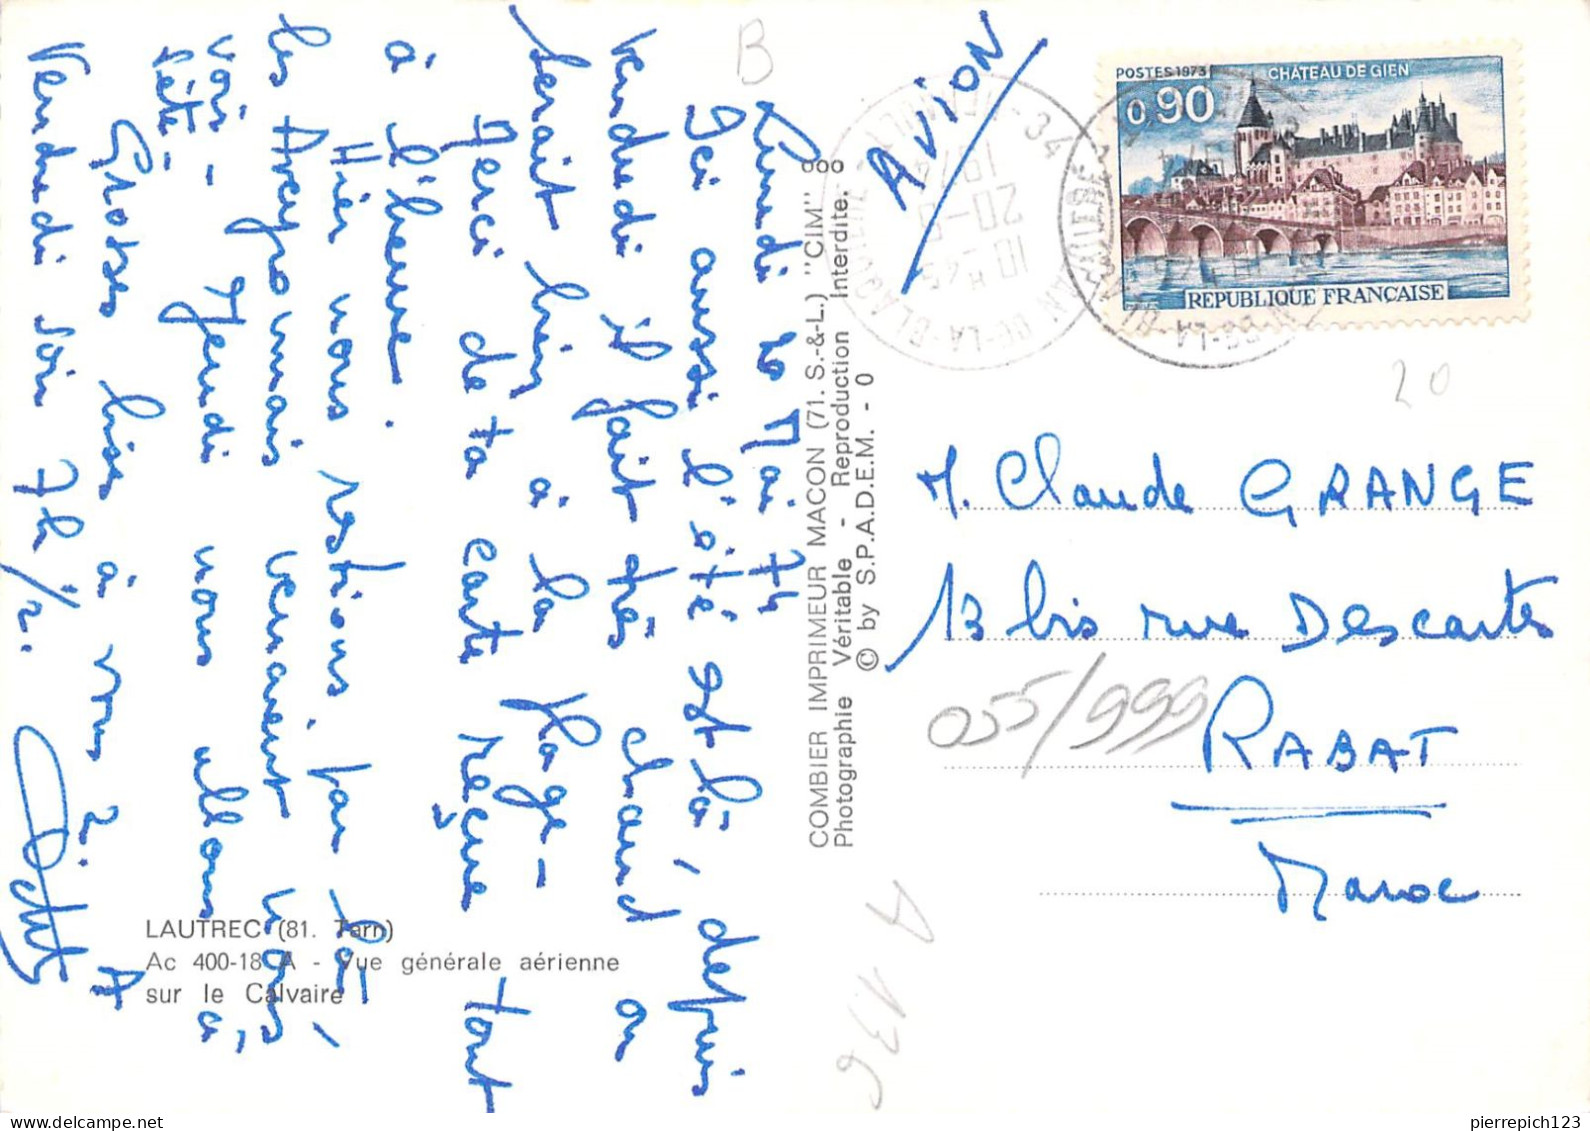 Lundi 20 Mai 74
Ici aussi l'été est là, depuis
Vendredi il fait très chaud on
serait bien à la plage -
Merci de ta carte reçue tout
à l'heure.
Hier nous restions, par là,
les Aveyronnais venaient nous
voir - Jeudi nous allons à
Sète.
Grosses bises à vous 2. A
Vendredi soir 7h 1/2.
LAUTREC (81. Tarn)
Ac 400-18 A - Vue générale aérienne
sur le Calvaire
COMBIER IMPRIMEUR MACON (71. S.-&-L.) "CIM"
Photographie Véritable - Reproduction Interdite.
© by S.P.A.D.E.M. - 0
B
AVION
POSTES 1973 CHATEAU DE GIEN
0,90
REPUBLIQUE FRANÇAISE
10 H 45
20-5
1974
34
20
M. Claude GRANGE
13 bis rue Descartes
RABAT
Maroc
055/999
A 136
pierrepich123